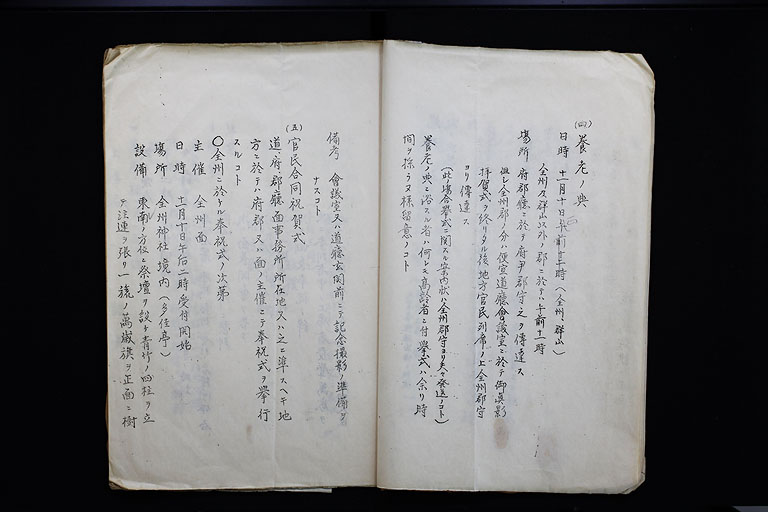 (四) 養老ノ典
日時 十一月十日午前十一時(全州、群山)
全州及群山以外ノ郡ニ於テハ午前十一時
場所 府郡廳ニ於テ府尹郡守之ヲ傳達ス
但シ全州郡ノ分ハ便宜道廳會議室ニ於テ御眞影
拝賀式ヲ終リタル後地方官民列席ノ上全州郡守
ヨリ傳達ス
(此場合挙式ニ関スル案内状ハ全州郡守ヨリ発送ノコト)
養老ノ典ニ浴スル者ハ何レモ高齢者ニ付挙式ハ余リ時
間ヲ採ラヌ様留意ノコト
備考 會議室又ハ道廳玄関前ニテ記念撮影ノ準備ヲ
ナスコト
(五) 官民合同祝賀式
道、府、郡廳面事務所所在地又ハ之ニ準スヘキ地
方ニ於テハ府郡又ハ面ノ主催ニテ奉祝式ヲ挙行
スルコト
〇全州ニ於ケル奉祝式ノ次第
主催 全州面
日時 十一月十日午后二時受付開始
場所 全州神社境内(多佳亭)
設備 東南ノ方位ニ祭壇ヲ設ケ青竹ノ四柱ヲ立
テ注連ヲ張リ一旒ノ萬歳旗ヲ正面ニ樹